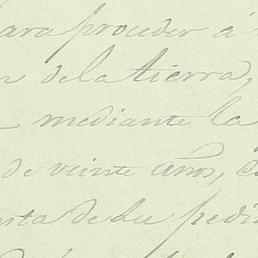 para proceder á
de la tierra,
mediante la
de veinte años,
de su pedi